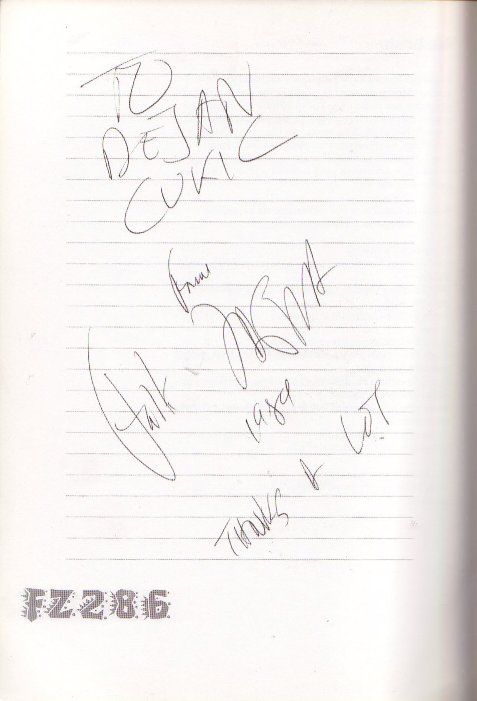 TO
DEJAN
CUKIC
from
1984
THANKS A LOT
FZ286